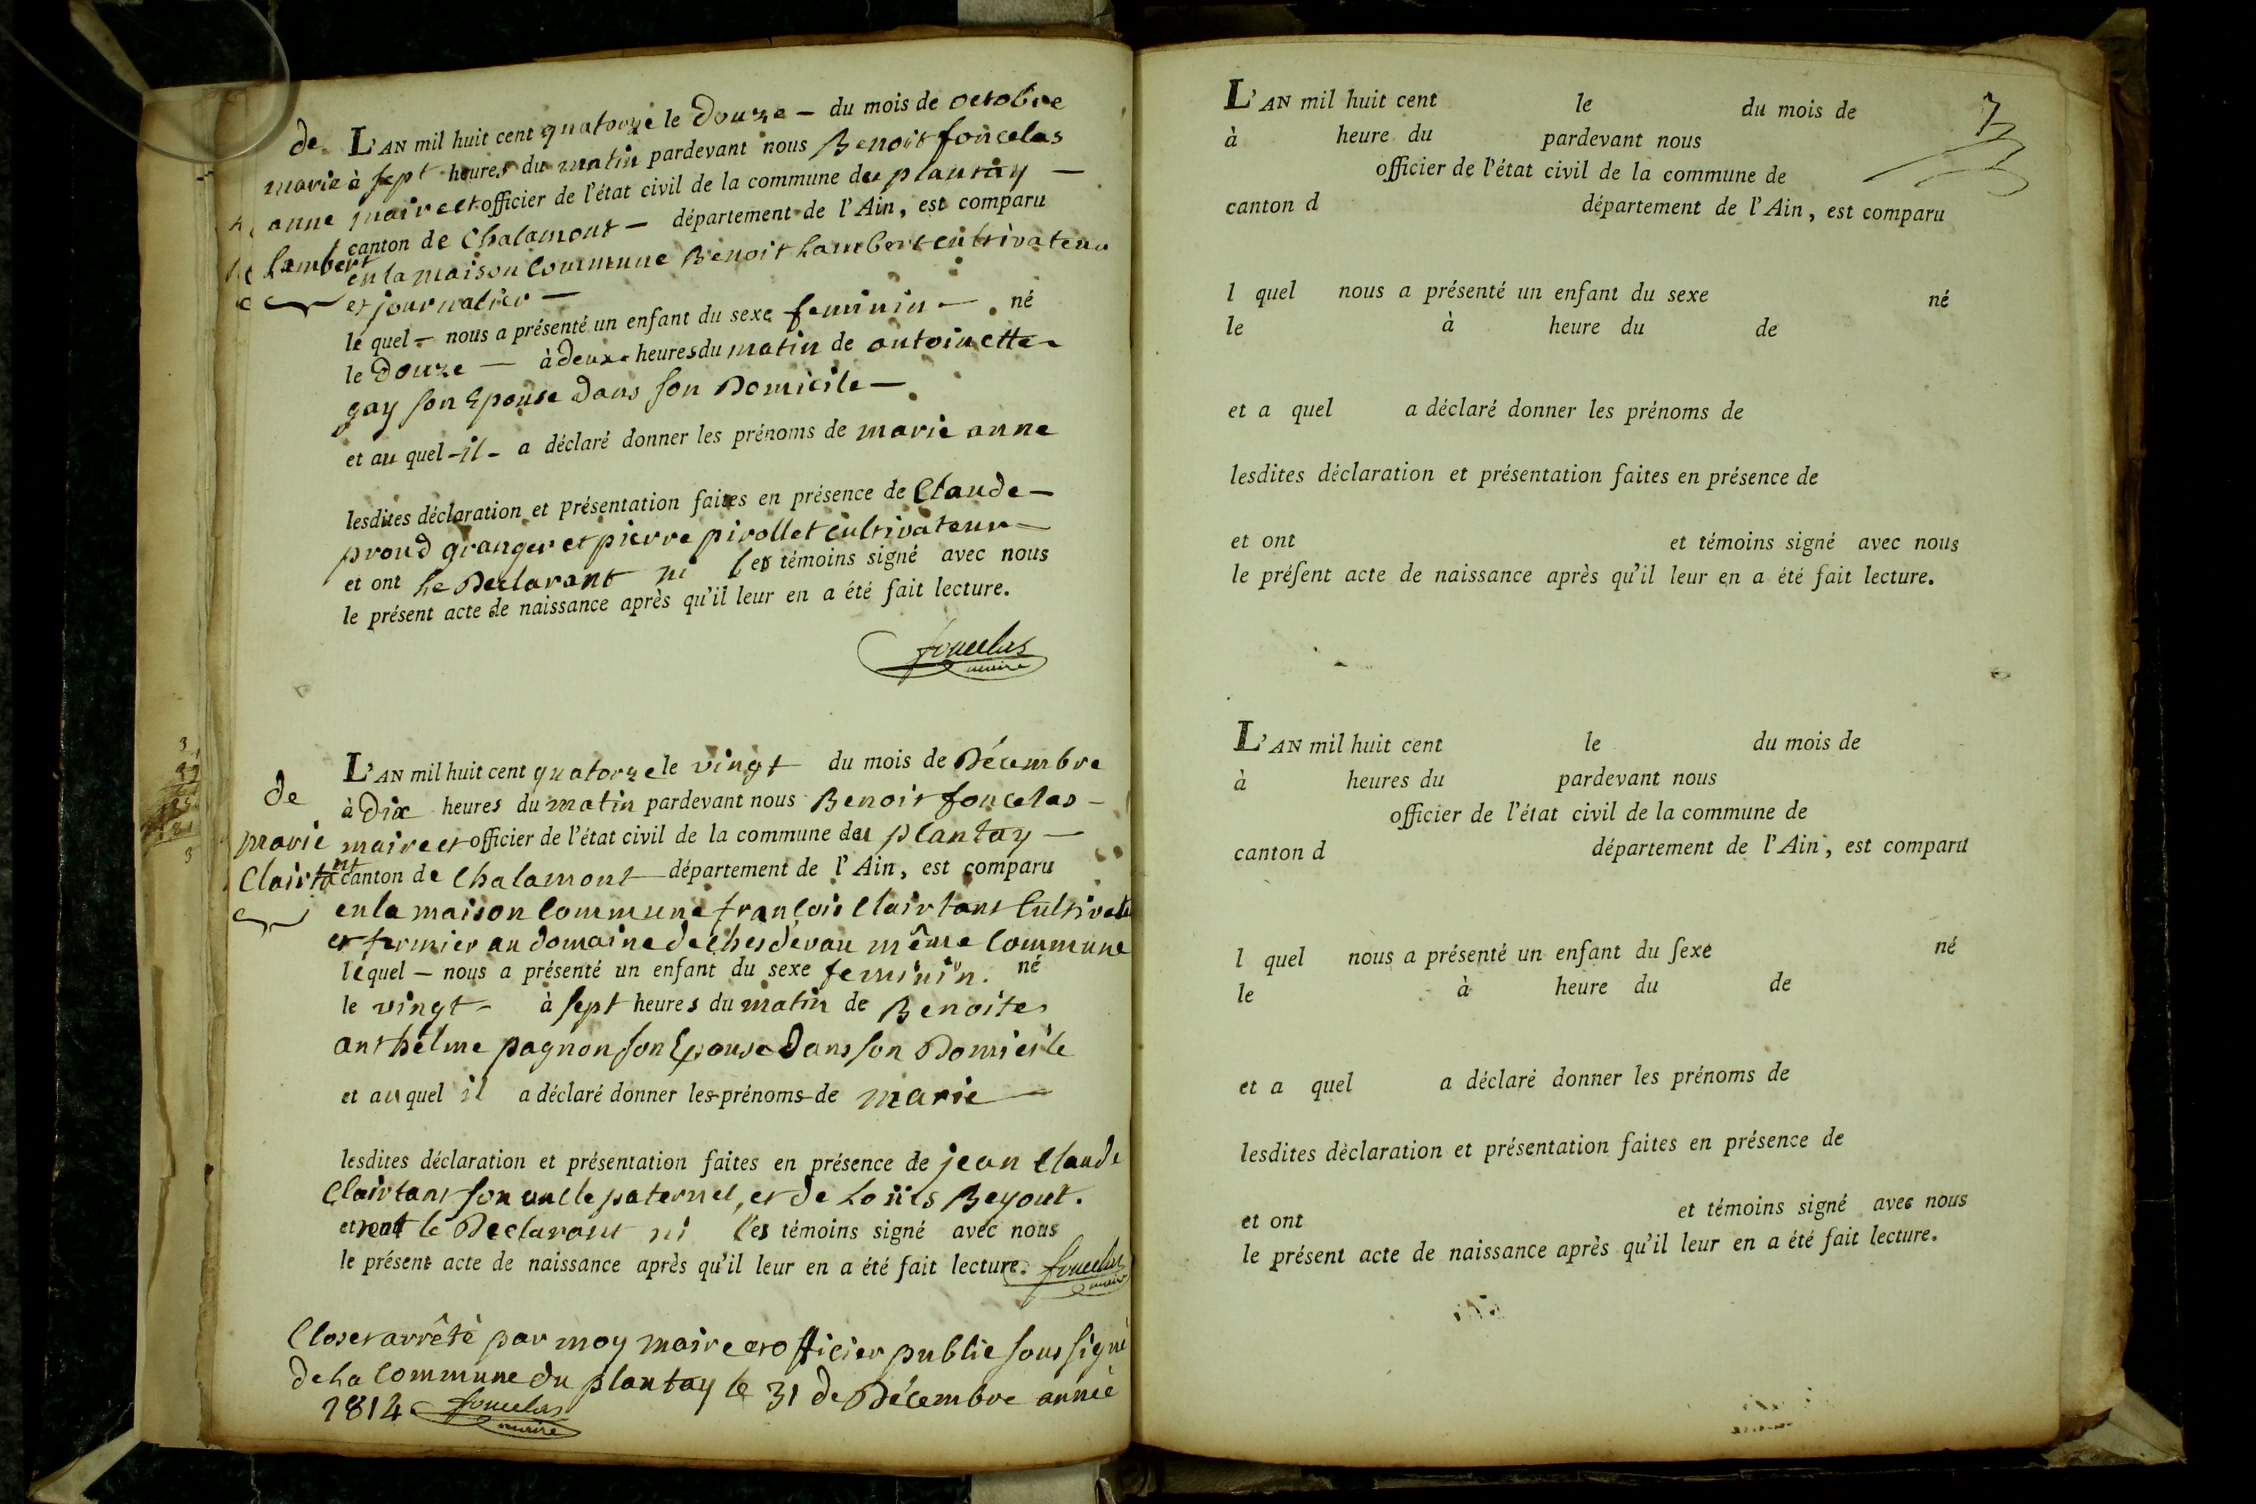 de
marie
anne
Lambert
L'AN mil huit cent quatorze le Douze - du mois de octobre
à sept heures du matin pardevant nous Benoit foncelas
maire et officier de l'état civil de la commune du plantay -
canton de Chalamont - département de l'Ain, est comparu
en la maison Commune Benoit Lambert cultivateur
et journalier -
lequel - nous a présenté un enfant du sexe feminin - né
le Douze - à deux heures du matin de antoinette
gay son Epouse Dans son Domicile -
et au quel - il - a déclaré donner les prénoms de marie anne
lesdites déclaration et présentation faites en présence de Claude -
proud granger et pierre pirollet cultivateur -
et ont le Declarant ni les témoins signé avec nous
le présent acte de naissance après qu'il leur en a été fait lecture.
foncelas
maire
de
marie
Clairtant
L'AN mil huit cent quatorze le vingt du mois de Décembre
à Dix heures du matin pardevant nous Benoit foncelas -
maire et officier de l'état civil de la commune du plantay -
canton de Chalamont - département de l'Ain, est comparu
en la maison Commune françois Clairtant Cultivate
et fermier au domaine de même Commune
lequel - nous a présenté un enfant du sexe feminin. né
le vingt - à sept heures du matin de Benoite
anthelme pagnon son Epouse Dans son Domicile
et au quel il a déclaré donner les prénoms de marie -
lesdites déclaration et présentation faites en présence de jean Claude
Clairtant son oncle paternel, et de Loüis Beyout.
et n'ont le Declarant ni les témoins signé avec nous
le présent acte de naissance après qu'il leur en a été fait lecture. foncelas
maire
Clos et arrêté par moy maire et officier public sous signé
de La Commune du plantay le 31 de Décembre année
1814 foncelas
maire
L'AN mil huit cent le du mois de
à heure du pardevant nous
officier de l'état civil de la commune de
canton d département de l'Ain, est comparu
l quel nous a présenté un enfant du sexe né
le à heure du de
et a quel a déclaré donner les prénoms de
lesdites déclaration et présentation faites en présence de
et ont et témoins signé avec nous
le préſent acte de naissance après qu'il leur en a été fait lecture.
L'AN mil huit cent le du mois de
à heures du pardevant nous
officier de l'état civil de la commune de
canton d département de l'Ain, est comparu
l quel nous a présenté un enfant du ſexe né
le à heure du de
et a quel a déclaré donner les prénoms de
lesdites déclaration et présentation faites en présence de
et ont et témoins signé avec nous
le présent acte de naissance après qu'il leur en a été fait lecture.